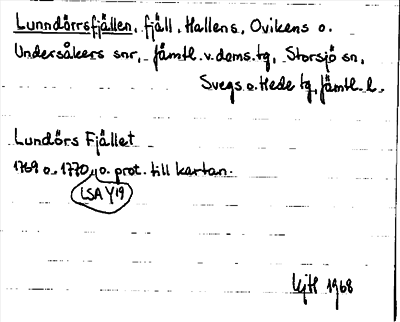 Lunndörrsfjällen, fjäll, Hallens, Ovikens o.
Undersåkers snr, Jämtl. v. doms. tg, Storsjö sn,
Svegs o. Hede tg, Jämtl. l.
Lundörs Fjället
1769 o. 1770 o. prot. till kartan.
LSA Y19
1968